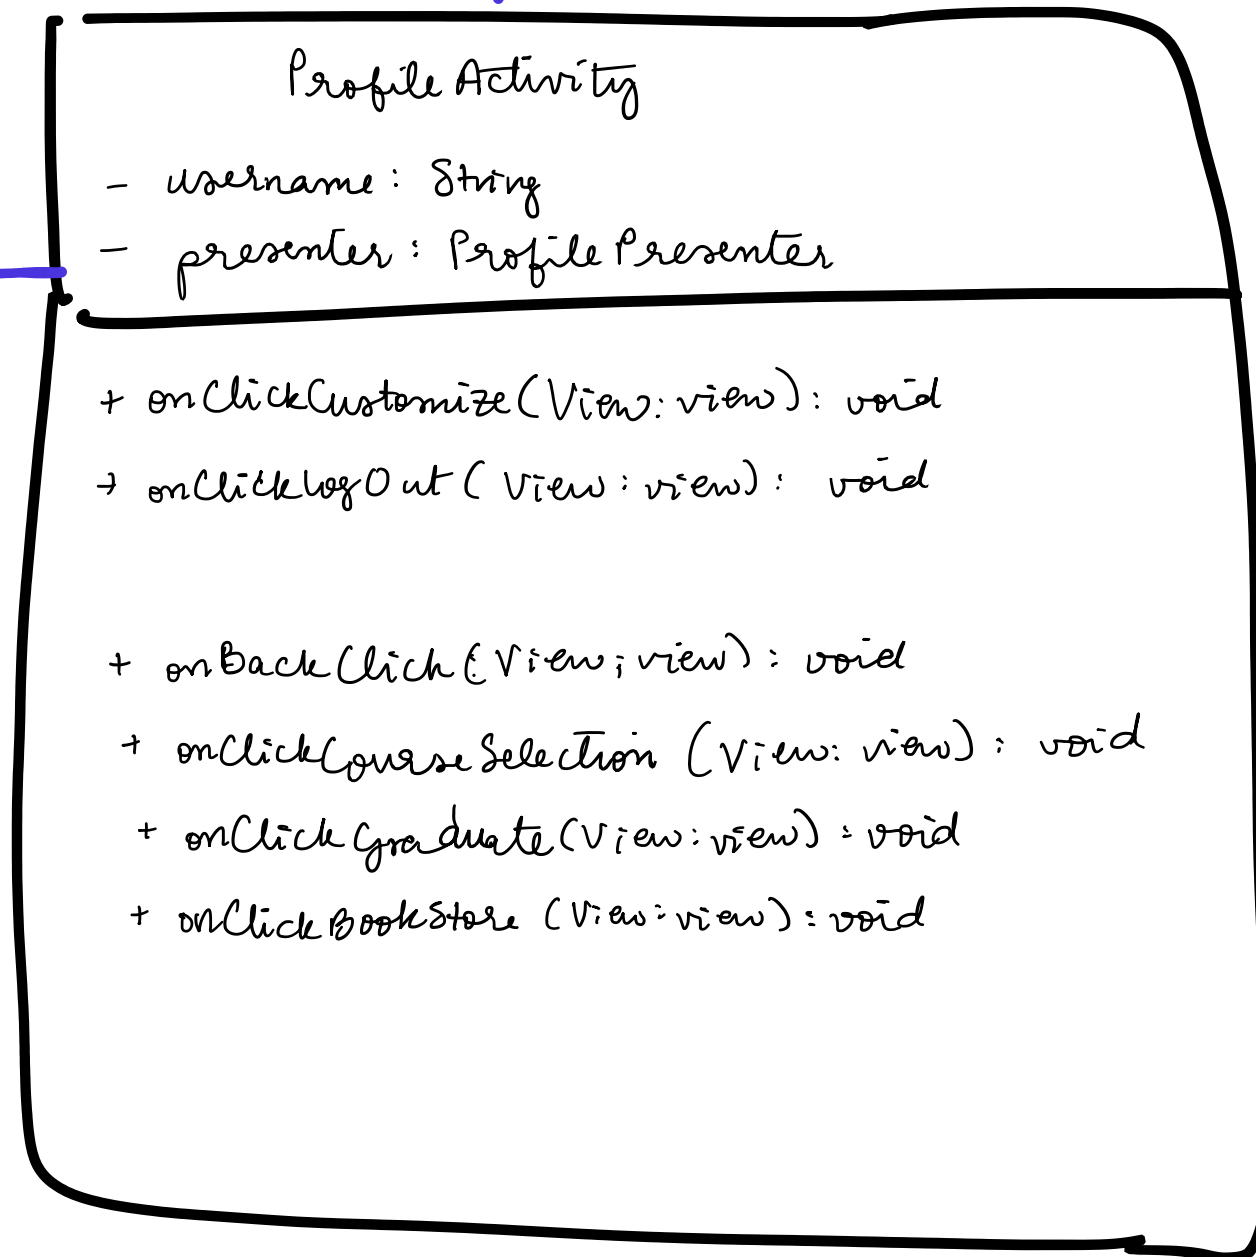 ProfileActivity
- username: String
- presenter: ProfilePresenter
+ onClickCustomize(View:view): void
+ onClickLogOut(View:view): void
+ onBackClick(View;view): void
+ onClickCourseSelection (View:view): void
+ onClickGraduate(View:view): void
+ onClickBookStore (View:view): void